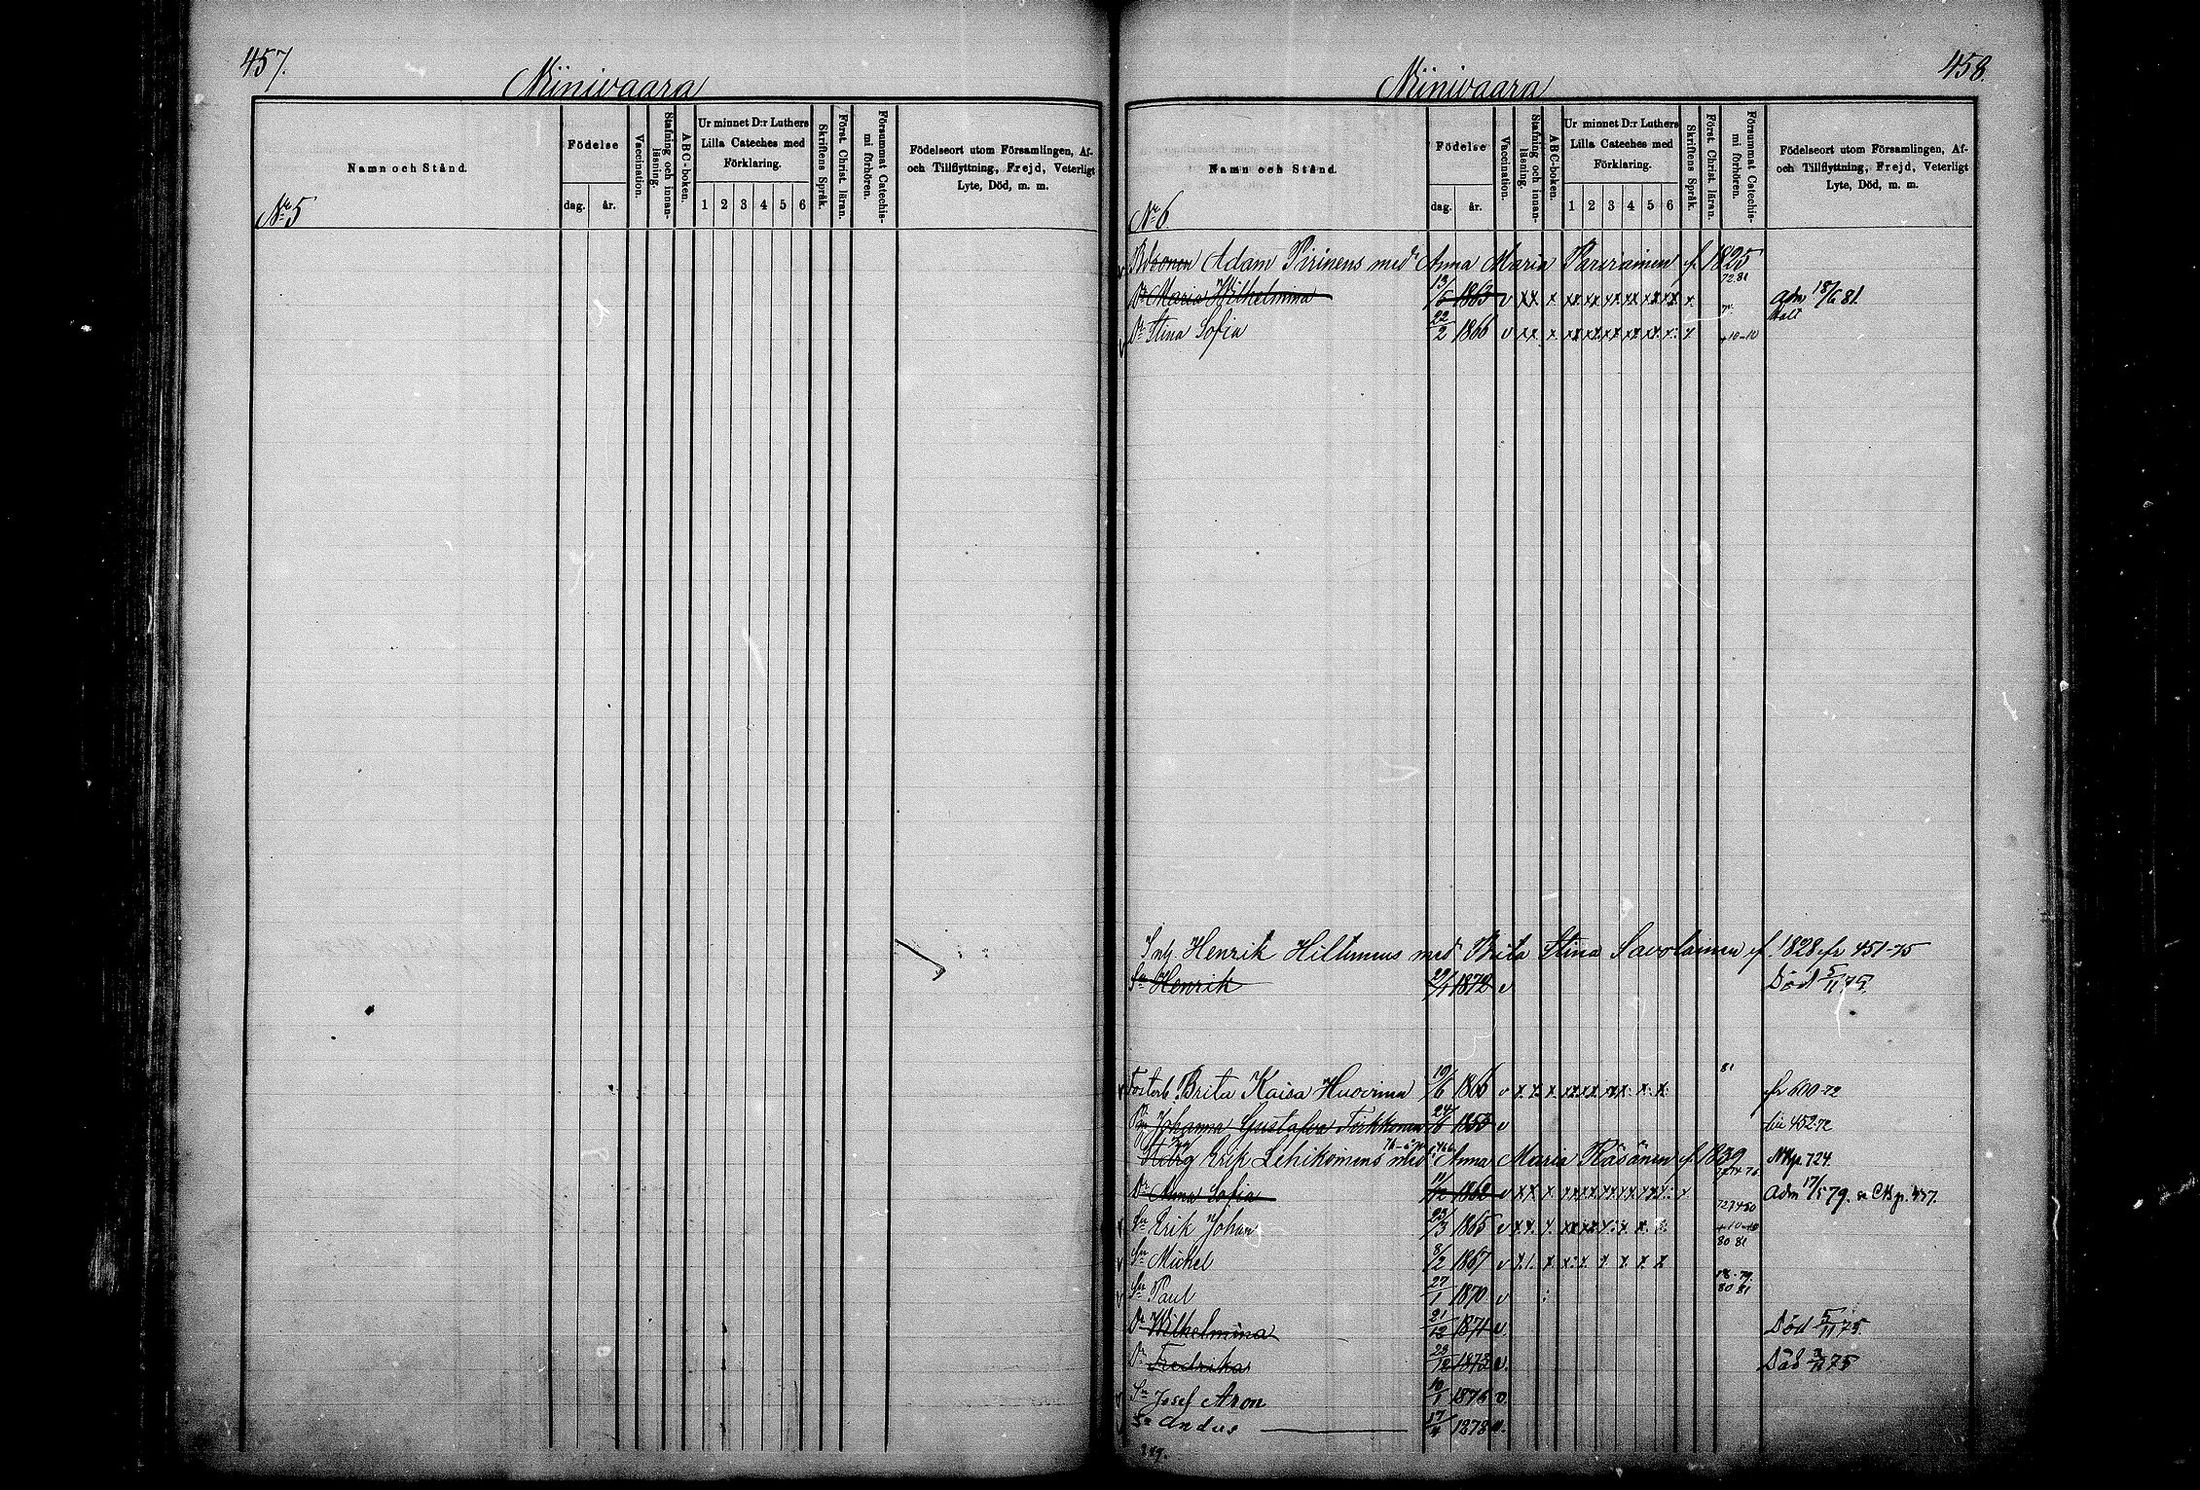 457.
Niinivaara
Namn och Stånd.
Födelse
dag.
år.
Vaccination.
Stafning och innan-
läsning.
ABC-boken.
Ur minnet D:r Luthers
Lilla Cateches med
Förklaring.
1 2 3 4 5 6
Skriftens Språk.
Först. Christ. läran.
Försummat Catechis-
mi förhören.
Födelseort utom Församlingen, Af-
och Tillflyttning, Frejd, Veterligt
Lyte, Död, m. m.
Nr 5
458.
Niinivaara
Namn och Stånd.
Födelse
dag.
år.
Vaccination.
Stafning och innan-
läsning.
ABC-boken.
Ur minnet D:r Luthers
Lilla Cateches med
Förklaring.
1 2 3 4 5 6
Skriftens Språk.
Först. Christ. läran.
Försummat Catechis-
mi förhören.
Födelseort utom Församlingen, Af-
och Tillflyttning, Frejd, Veterligt
Lyte, Död, m. m.
Nr 6
Adam Pirinens med Anna Maria f 1825
72 81
Dr Maria Wilhelmina 13/6 1863 v xx x xx xx xx xx xx xx x adm 18/6 81.
Dr Stina Sofia 22/2 1866 v xx x xx xx xx xx xx x x
Inh. Henrik Hiltunens med Brita Stina Savolainen f. 1828 fr 451-75
Sn Henrik 1872 v Död 5/11 75.
81
Brita Kaisa Huovinen 19/6 1866 v x x x xx xx xx x x fr 600-72
Dr Johanna Gustafva 24/6 1853 v 452-72
Erik Lehikoinens med Anna Maria Räsänen f. 1839 Nkp. 724.
Dr Anna Sofia 11/2 1862 v xx x xx xx xx xx xx x Adm 17/5 79. Ckp. 457.
Sn Erik Johan 23/3 1865 v x x x
80 81
Sn Michel 8/2 1867 v x x x x x x x x x
78-79
80 81
Sn Paul 27/1 1870 v
Dr Wilhelmina 21/12 1871 v. Död 5/11 75.
Dr Fredrika 23/12 1873 v. Död 75
Sn Josef Aron 10/1 1876 v.
Sn Anders 17/4 1878 v.